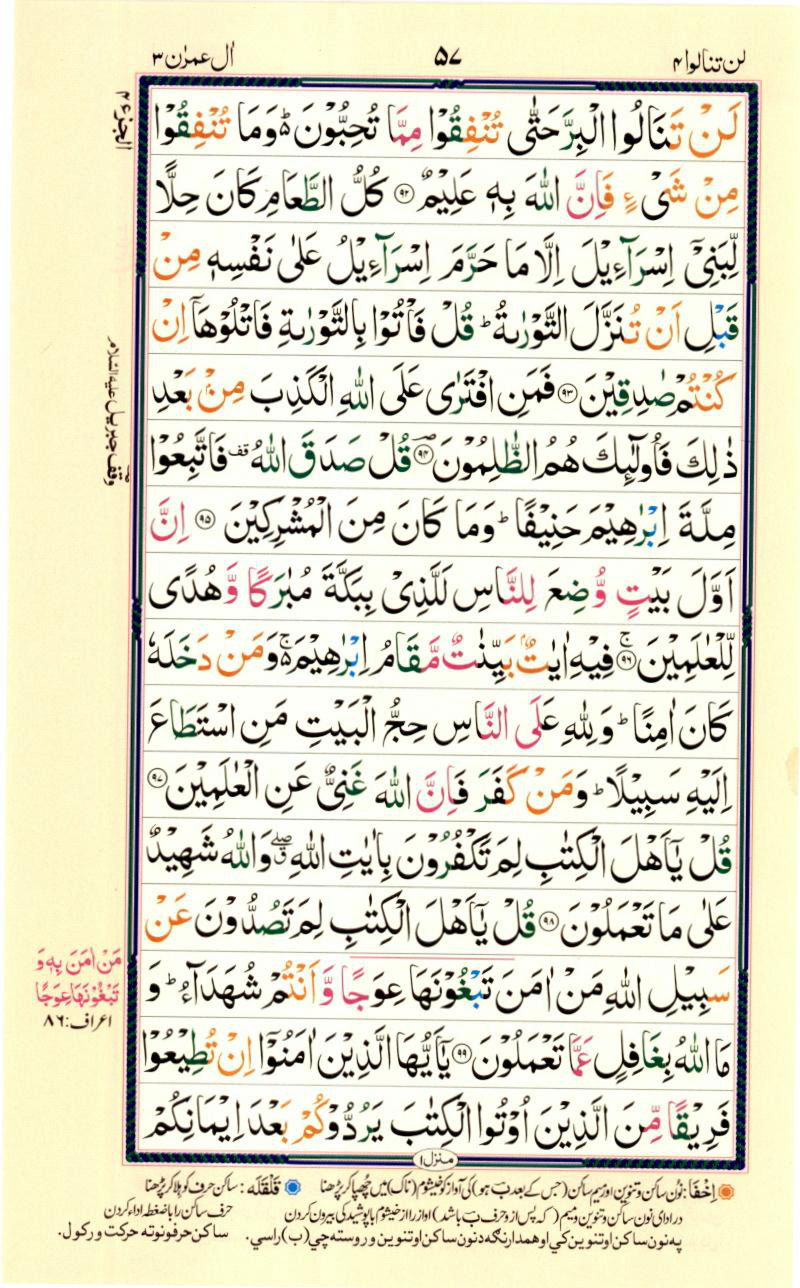 لن تنالوا ۴
۵۷
اٰل عمرٰن ۳
الجزء ۴
لَنْ تَنَالُوا الْبِرَّ حَتّٰى تُنْفِقُوْا مِمَّا تُحِبُّوْنَ ۬ؕ وَمَا تُنْفِقُوْا
مِنْ شَىْءٍ فَاِنَّ اللّٰهَ بِهٖ عَلِيْمٌ ۝۹۲ كُلُّ الطَّعَامِ كَانَ حِلًّا
لِّبَنِىْٓ اِسْرَآءِيْلَ اِلَّا مَا حَرَّمَ اِسْرَآءِيْلُ عَلٰى نَفْسِهٖ مِنْ
قَبْلِ اَنْ تُنَزَّلَ التَّوْرٰىةُ ؕ قُلْ فَاْتُوْا بِالتَّوْرٰىةِ فَاتْلُوْهَاۤ اِنْ
كُنْتُمْ صٰدِقِيْنَ ۝۹۳ فَمَنِ افْتَرٰى عَلَى اللّٰهِ الْكَذِبَ مِنْۢ بَعْدِ
ذٰلِكَ فَاُولٰٓئِكَ هُمُ الظّٰلِمُوْنَ ۝۹۴ؔ قُلْ صَدَقَ اللّٰهُ قف فَاتَّبِعُوْا
وقف جبریل علیہ السلام
مِلَّةَ اِبْرٰهِيْمَ حَنِيْفًا ؕ وَمَا كَانَ مِنَ الْمُشْرِكِيْنَ ۝۹۵ اِنَّ
اَوَّلَ بَيْتٍ وُّضِعَ لِلنَّاسِ لَلَّذِىْ بِبَكَّةَ مُبٰرَكًا وَّهُدًى
لِّلْعٰلَمِيْنَ ۝۹۶ۚ فِيْهِ اٰيٰتٌۢ بَيِّنٰتٌ مَّقَامُ اِبْرٰهِيْمَ ۬ۚ وَمَنْ دَخَلَهٗ
كَانَ اٰمِنًا ؕ وَلِلّٰهِ عَلَى النَّاسِ حِجُّ الْبَيْتِ مَنِ اسْتَطَاعَ
اِلَيْهِ سَبِيْلًا ؕ وَمَنْ كَفَرَ فَاِنَّ اللّٰهَ غَنِىٌّ عَنِ الْعٰلَمِيْنَ ۝۹۷
قُلْ يٰۤاَهْلَ الْكِتٰبِ لِمَ تَكْفُرُوْنَ بِاٰيٰتِ اللّٰهِ ۖق وَاللّٰهُ شَهِيْدٌ
عَلٰى مَا تَعْمَلُوْنَ ۝۹۸ قُلْ يٰۤاَهْلَ الْكِتٰبِ لِمَ تَصُدُّوْنَ عَنْ
سَبِيْلِ اللّٰهِ مَنْ اٰمَنَ تَبْغُوْنَهَا عِوَجًا وَّاَنْتُمْ شُهَدَآءُ ؕ وَ
مَنْ اٰمَنَ بِهٖ وَ
تَبْغُوْنَهَا عِوَجًا
اعراف: ۸۶
مَا اللّٰهُ بِغَافِلٍ عَمَّا تَعْمَلُوْنَ ۝۹۹ يٰۤاَيُّهَا الَّذِيْنَ اٰمَنُوْٓا اِنْ تُطِيْعُوْا
فَرِيْقًا مِّنَ الَّذِيْنَ اُوْتُوا الْكِتٰبَ يَرُدُّوْكُمْ بَعْدَ اِيْمَانِكُمْ
منزل ۱
اِخْفَا: نون ساکن و تنوین اور میم ساکن (جس کے بعد ب ہو) کی آواز کو خیشوم (ناک) میں چُھپا کر پڑھنا قَلْقَلَه: ساکن حرف کو ہلا کر پڑھنا
در ادای نون ساکن و تنوین و میم (که پس از و حرف ب باشد) آواز را از خیشوم با پوشیدگی بیرون کردن حرف ساکن را با ضغطه اداء کردن
په نون ساکن او تنوین کي او همدارنګه د نون ساکن او تنوین و روسته چي (ب) راسي. ساکن حرفونو ته حرکت ورکول.